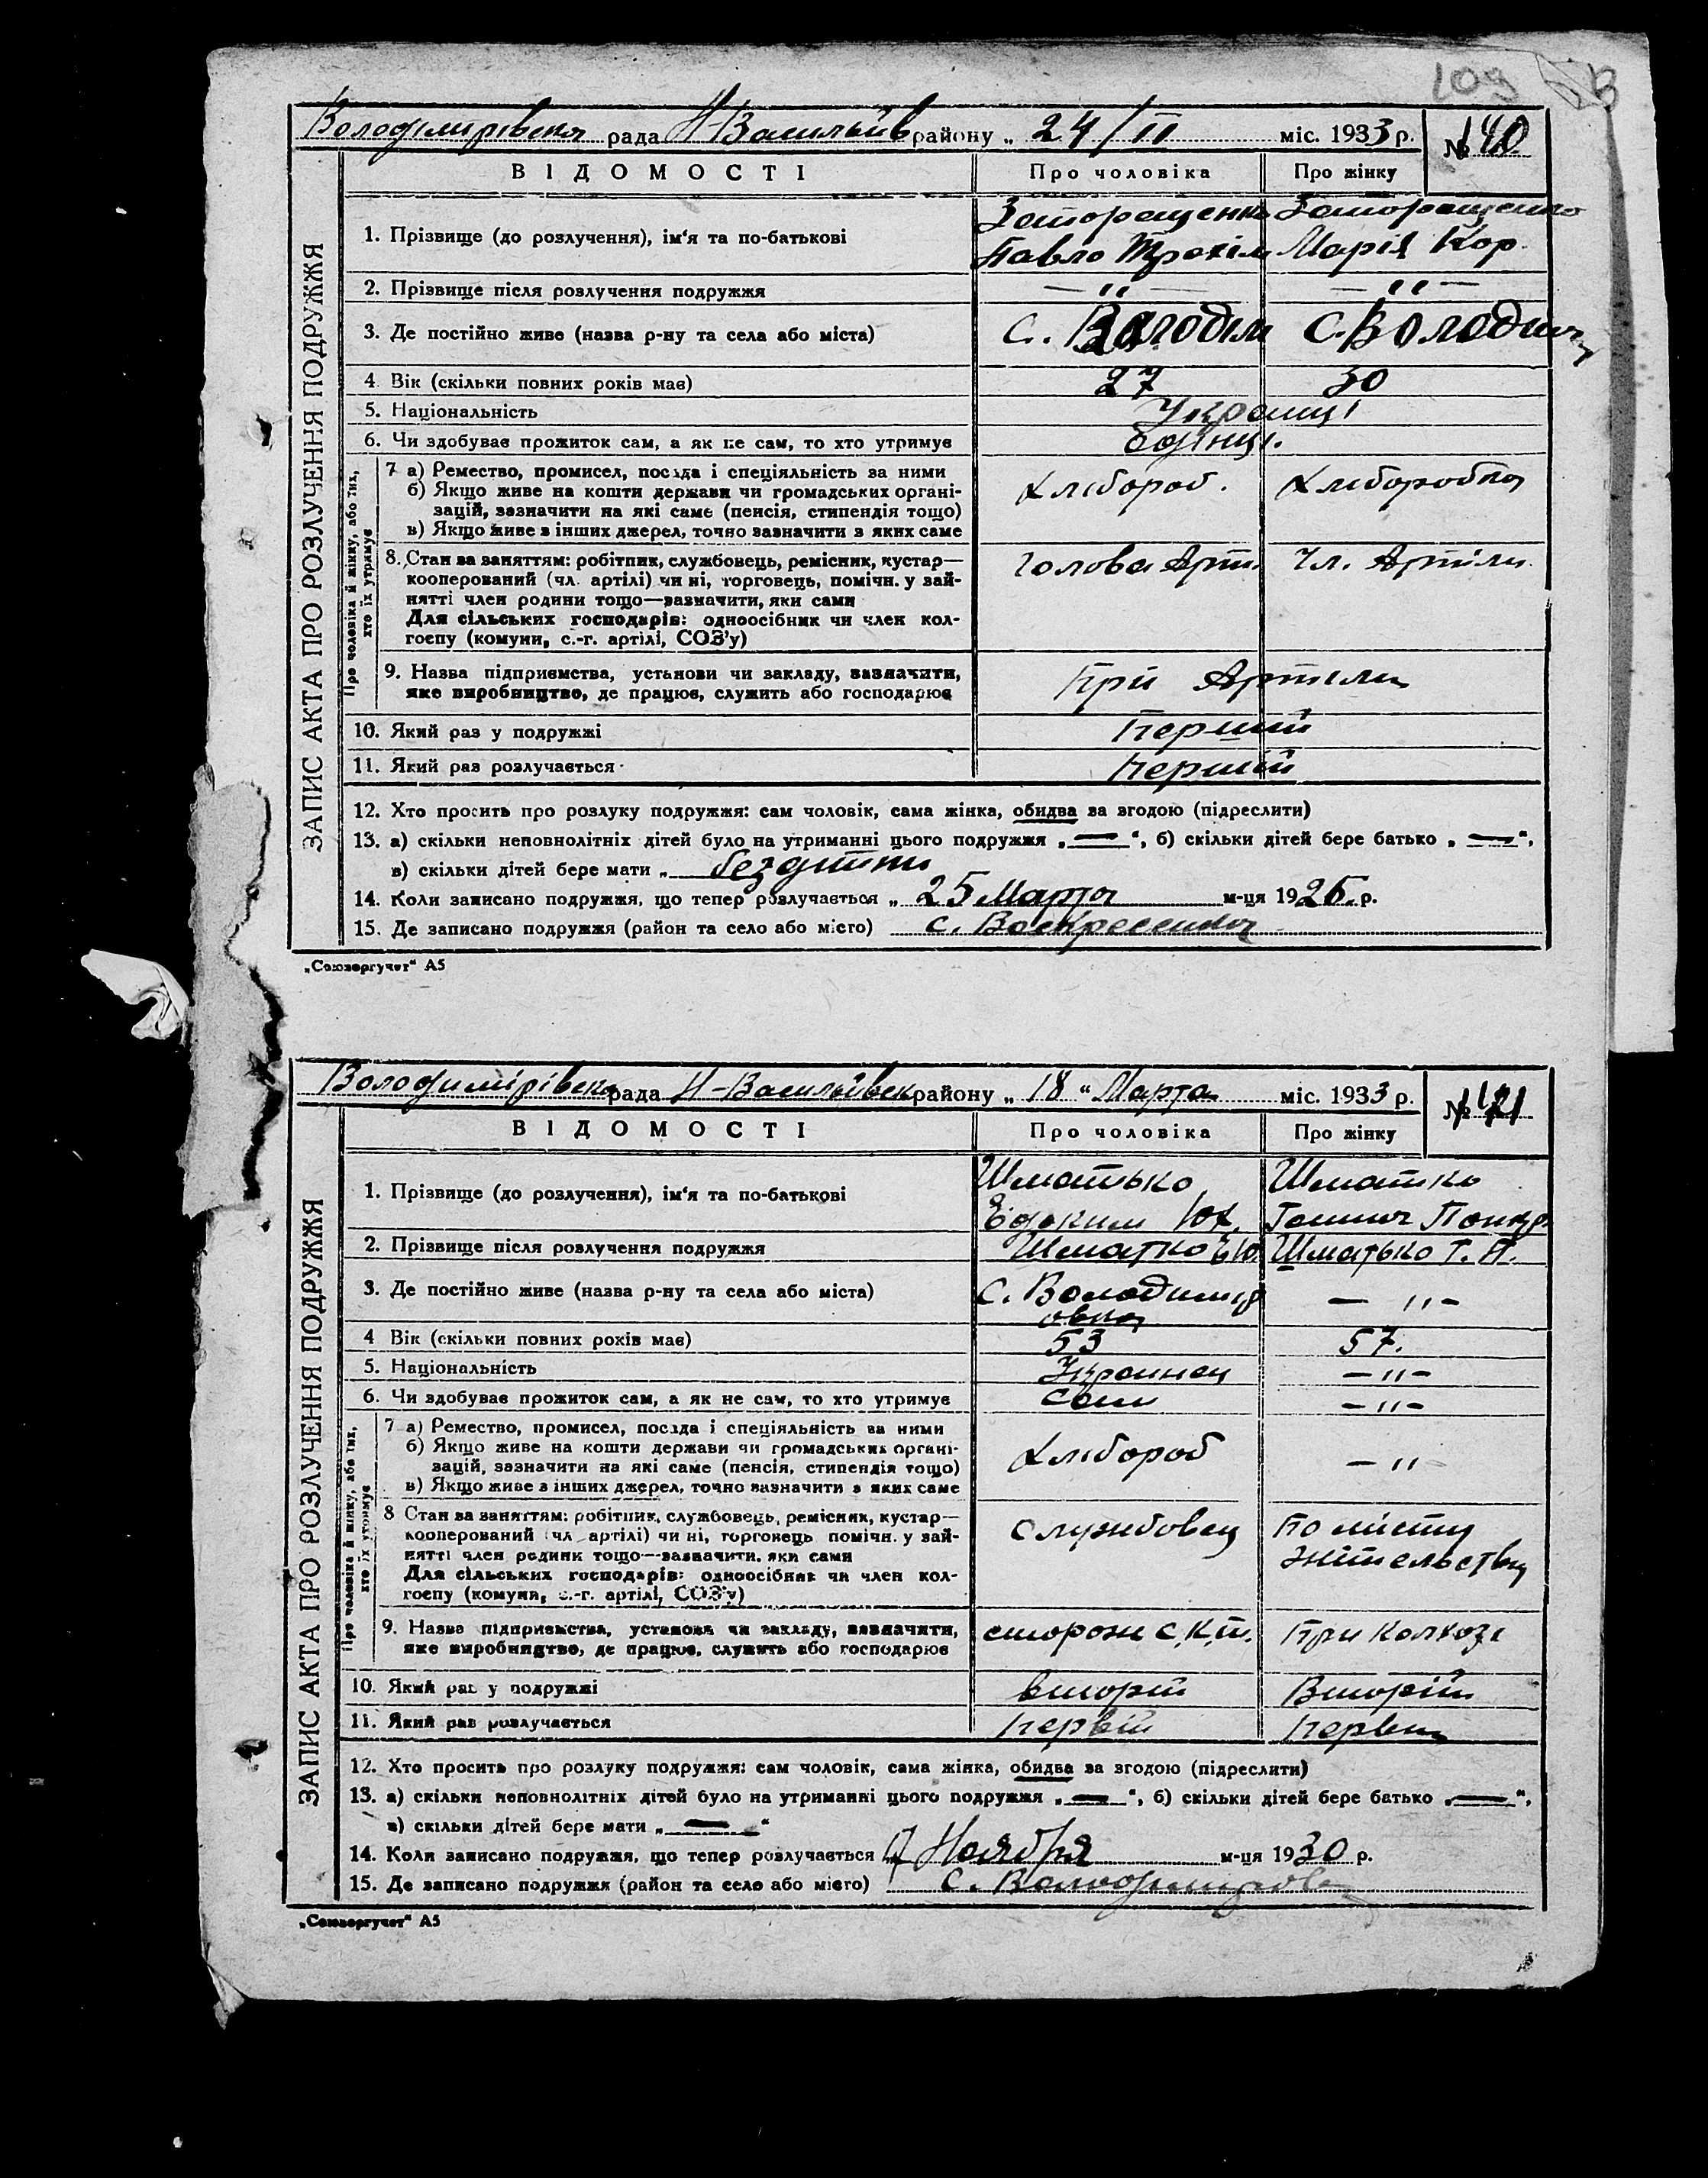 109 В
Володимирівська рада Н-Васильїв району „ 24/II міс. 1933 р. № 140
ВІДОМОСТІ Про чоловіка Про жінку
ЗАПИС АКТА ПРО РОЗЛУЧЕННЯ ПОДРУЖЖЯ
1. Прізвище (до розлучення), ім'я та по-батькові
Павло Трохім Марія Кор.
2. Прізвище після розлучення подружжя — " — — " —
3. Де постійно живе (назва р-ну та села або міста) с. Володим с. Володим
4. Вік (скільки повних років має) 27 30
5. Національність Українці
6. Чи здобуває прожиток сам, а як не сам, то хто утримує
Про чоловіка й жінку, або тих, хто їх утримує
7 а) Ремество, промисел, посада і спеціяльність за ними
б) Якщо живе на кошти держави чи громадських органі- Хлібороб. Хліборобка
зацій, зазначити на які саме (пенсія, стипендія тощо)
в) Якщо живе з інших джерел, точно зазначити з яких саме
8. Стан за заняттям: робітник, службовець, ремісник, кустар— Голова Арт. Чл. Артіли
кооперований (чл. артілі) чи ні, торговець, помічн. у зай-
нятті член родини тощо—зазначити, яки сами
Для сільських господарів: одноосібник чи член кол-
госпу (комуни, с.-г. артілі, СОЗ'у)
9. Назва підприємства, установи чи закладу, зазначити, При Артили
яке виробництво, де працює, служить або господарює
10. Який раз у подружжі Перший
11. Який раз розлучається Перший
12. Хто просить про розлуку подружжя: сам чоловік, сама жінка, обидва за згодою (підреслити)
13. а) скільки неповнолітніх дітей було на утриманні цього подружжя „ — “, б) скільки дітей бере батько „ — “,
в) скільки дітей бере мати „
14. Коли записано подружжя, що тепер розлучається „ 25 Марта м-ця 1926. р.
15. Де записано подружжя (район та село або місто) с. Воскресенка
„Союзоргучет“ А5
Володимірівськ рада Н-Васильївськ району „ 18 “ Марта міс. 1933 р. №
ВІДОМОСТІ Про чоловіка Про жінку
ЗАПИС АКТА ПРО РОЗЛУЧЕННЯ ПОДРУЖЖЯ
1. Прізвище (до розлучення), ім'я та по-батькові Шматько Шматко
Юх.
2. Прізвище після розлучення подружжя Шматко Шматько Г. П.
3. Де постійно живе (назва р-ну та села або міста) с. Володимир — " —
овка
4 Вік (скільки повних років має) 53 57.
5. Національність Українец — " —
6. Чи здобуває прожиток сам, а як не сам, то хто утримує сам — " —
Про чоловіка й жінку, або тих, хто їх утримує
7 а) Ремество, промисел, посада і спеціяльність за ними
б) Якщо живе на кошти держави чи громадських органі- Хлібороб — " —
зацій, зазначити на які саме (пенсія, стипендія тощо)
в) Якщо живе з інших джерел, точно зазначити з яких саме
8 Стан за заняттям: робітник, службовець, ремісник, кустар— службовец По місту
кооперований (чл. артілі) чи ні, торговець помічн. у зай- жительству
нятті член родини тощо—зазначити, яки сами
Для сільських господарів: одноосібник чи член кол-
госпу (комуни, с.-г. артілі, СОЗ'у)
9. Назва підприємства, установи чи закладу, зазначити, сторож с.к.т. При Колхозі
яке виробництво, де працює, служить або господарює
10. Який раз у подружжі вторій Вторій
11. Який раз розлучається первій
12. Хто просить про розлуку подружжя: сам чоловік, сама жінка, обидва за згодою (підреслити)
13. а) скільки неповнолітніх дітей було на утриманні цього подружжя „ — “, б) скільки дітей бере батько „ — “,
в) скільки дітей бере мати „ — “
14. Коли записано подружжя, що тепер розлучається 7 Ноября м-ця 1930 р.
15. Де записано подружжя (район та село або місто) с.
„Союзоргучет“ А5